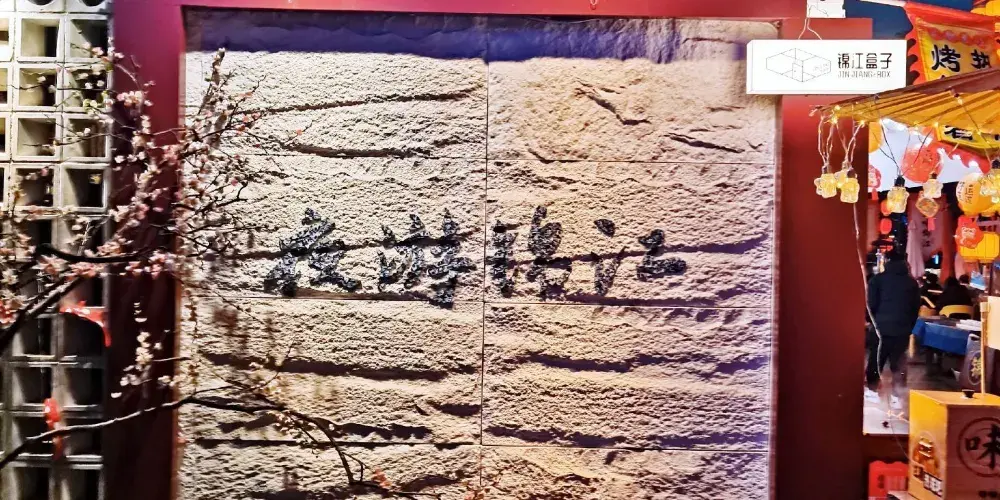 锦江盒子
JIN JIANG BOX
烤
夜游锦江
味